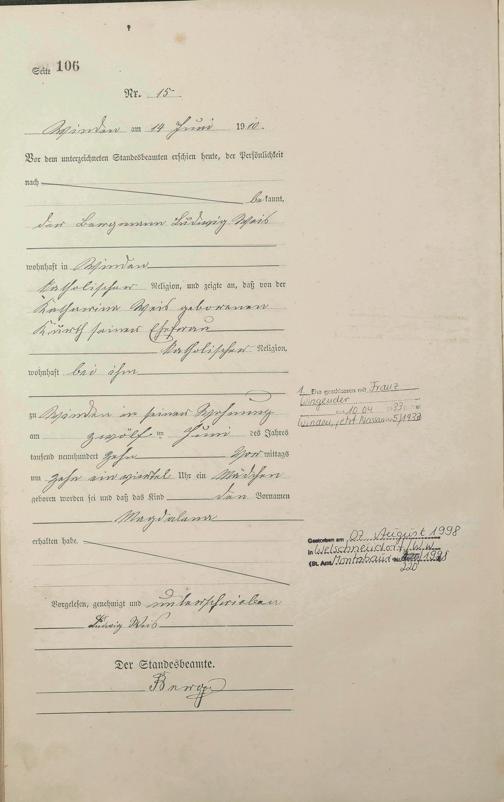 Seite 106
Nr. 15
Winden am 14 Juni 1910.
Vor dem unterzeichneten Standesbeamten erschien heute, der Persönlichkeit
nach
be kannt,
der Bergmann Ludwig Weis
wohnhaft in Winden
katholischer Religion, und zeigte an, daß von der
Katharina Weis geborenen
Kurth seiner Ehefrau
katholischer Religion,
wohnhaft bei ihm
zu Winden in seiner Wohnung
am zwölften Juni des Jahres
tausend neunhundert zehn Vor mittags
um zehn ein viertel Uhr ein Mädchen
geboren worden sei und daß das Kind den Vornamen
Magdalena
erhalten habe.
Vorgelesen, genehmigt und unterschrieben
Ludwig Weis
Der Standesbeamte.
Berg
1. Ehe geschlossen mit Franz
Wingender
am 10.04.33 in
Winden, jetzt Nassau 5/1933
Gestorben am 07. August 1998
in Welschneudorf/Ww
(St. Amt Montabaur 1998
220